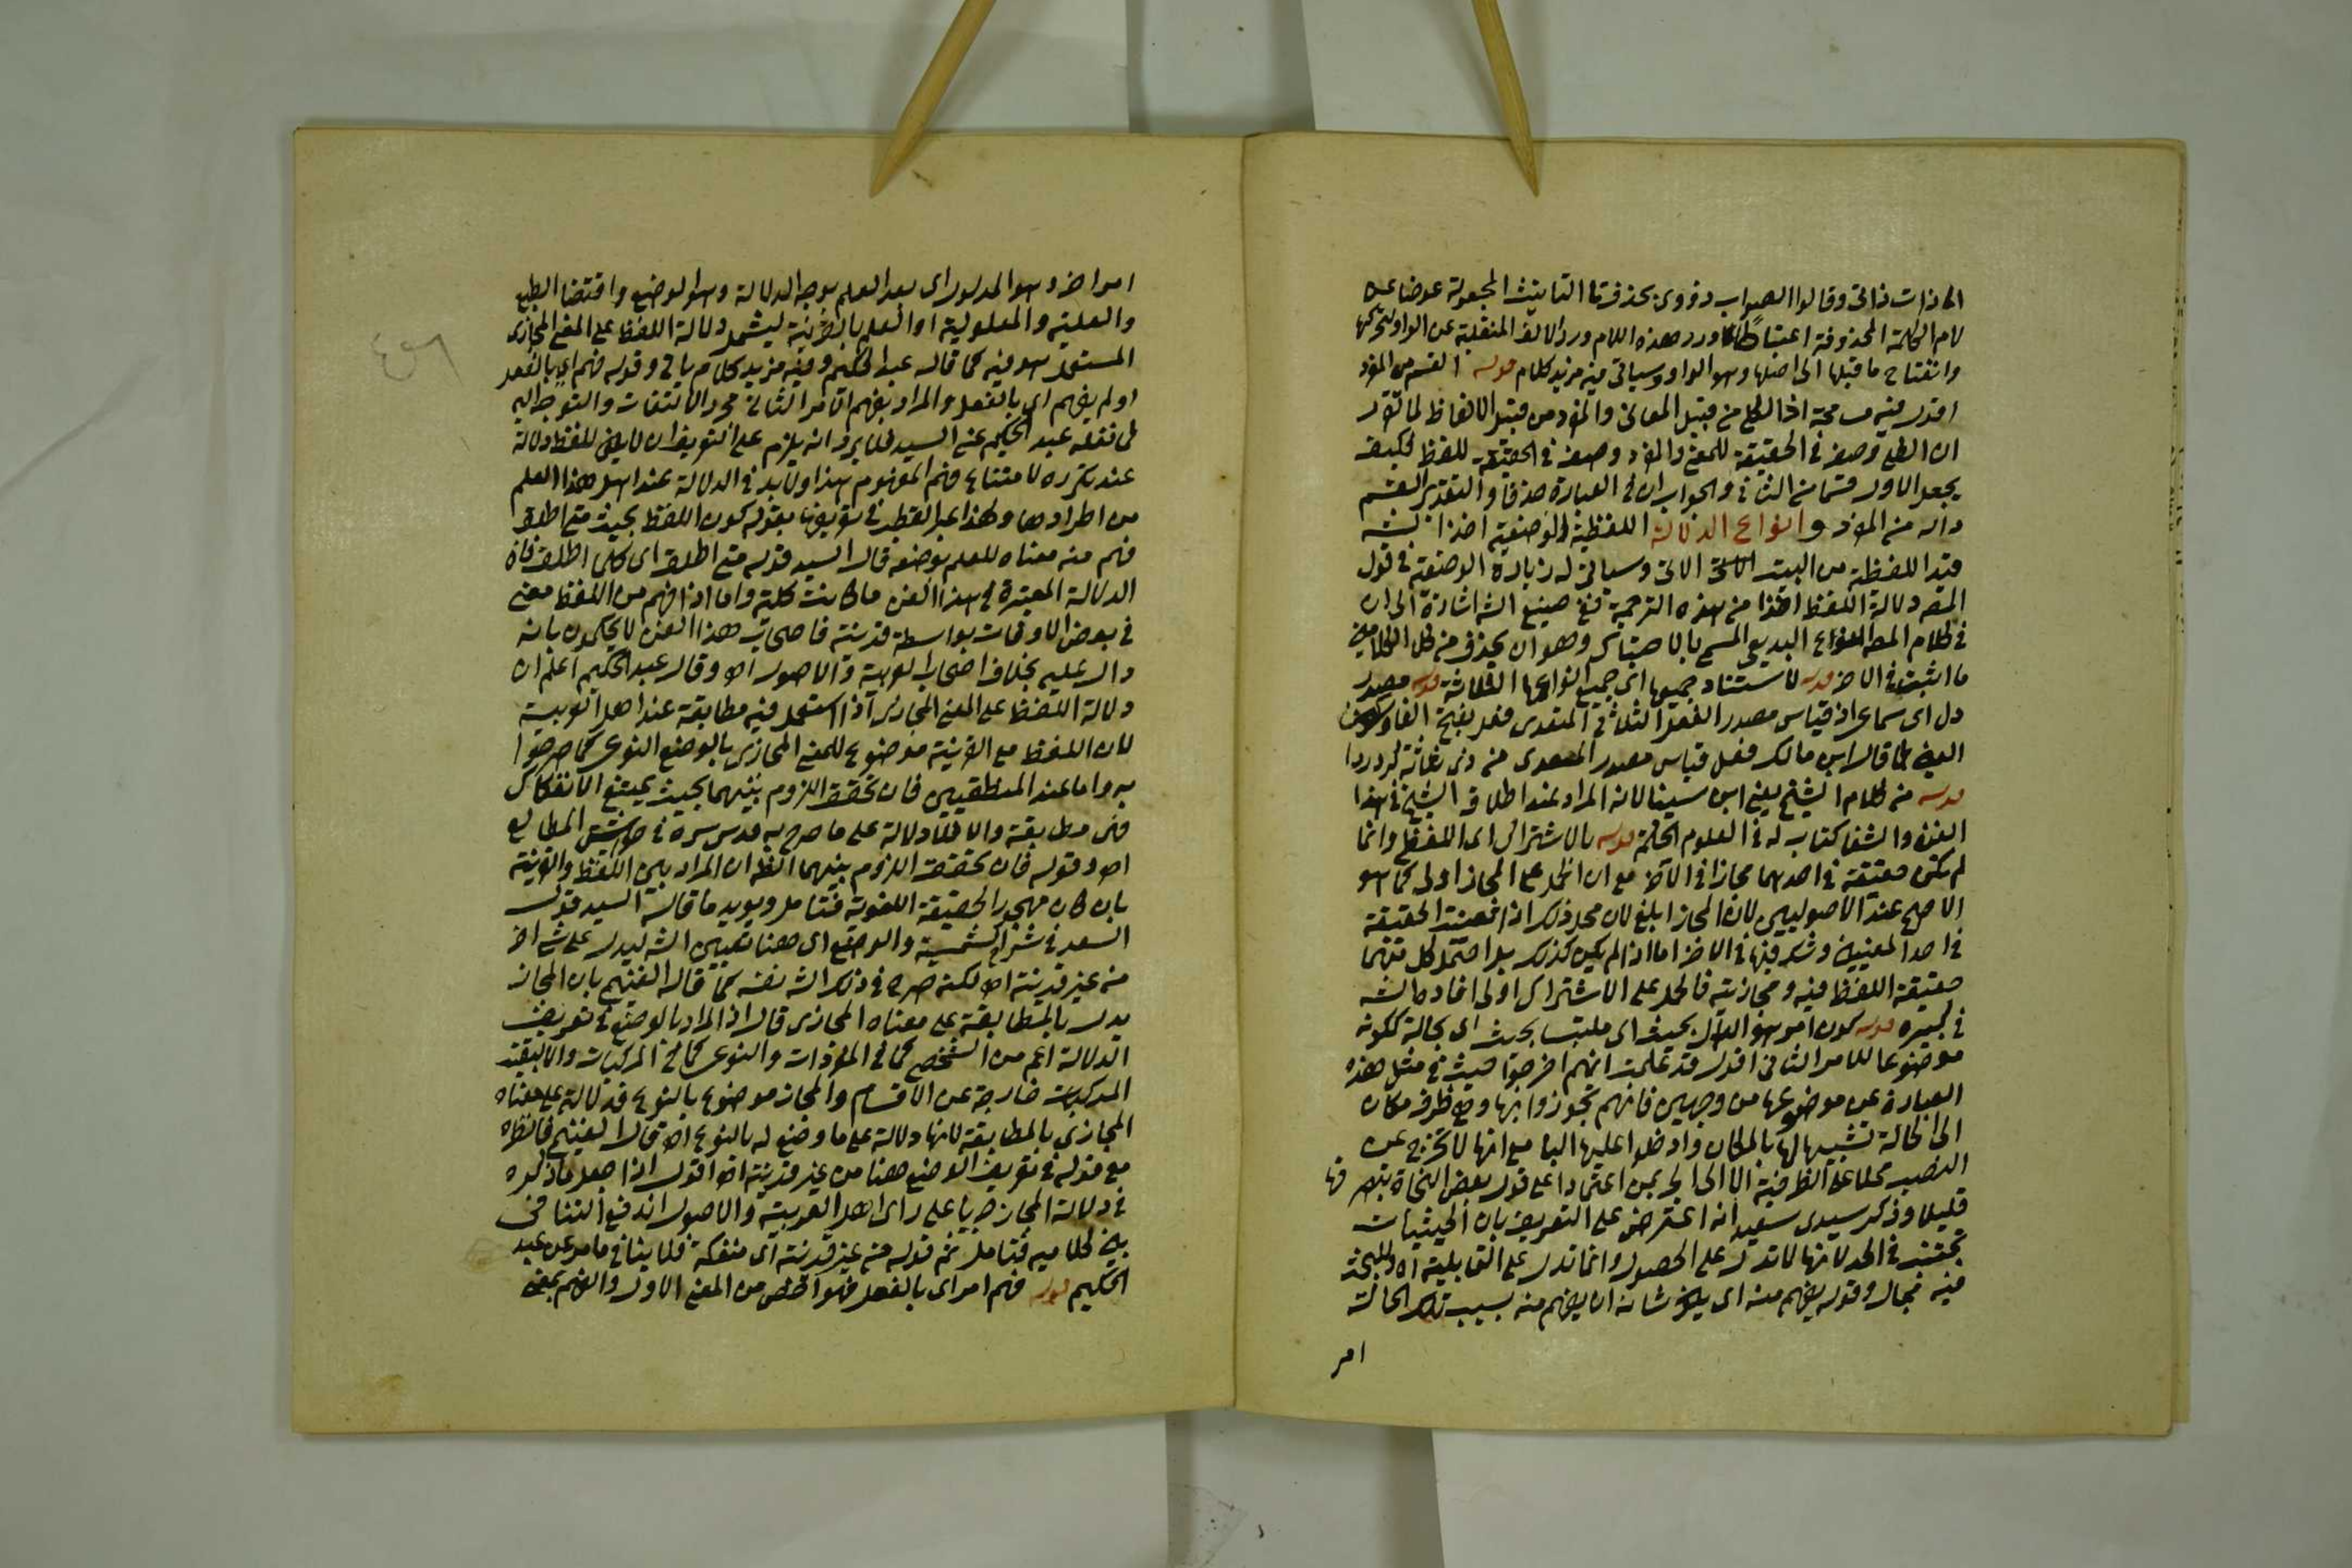 الى ذات ذاتى وقالوا الصواب ذووى بحذف تا التانيث المجعولة عوضا عن
لام الكلمة المحذوفة اعتباطا ورد هذه اللام ورد الالف المنقلبة عن الواو لتحركها
وانفتاح ما قبلها الى اصلها وهو الواو وسياتى فيه مزيد كلام قوله القسم من المفرد
اقول فيه مسامحة اذ الكلى من قبيل المعانى والمفرد من قبيل الالفاظ لما تقرر
ان الكلى وصف فى الحقيقة للمعنى والمفرد وصف فى الحقيقة للفظ فكيف
يجعل الاول قسما من الثانى والجواب ان فى العبارة حذفا والتقدير القسم
داله من المفرد وانواع الدلالة اللفظية الوضعية اخذ الشه
قيد اللفظية من البيت الاتى وسياتى له زيادة الوضعية فى قول
المصه دلالة اللفظ اخذا من هذه الترجمة ففى صنيع الشه اشارة الى ان
فى كلام المصه النوع البديعى المسمى بالاحتباك وهو ان يحذف من كل الكلامين
ما اثبت فى الاخر قوله لاستناد جميعها اى جميع انواعها الثلاثة قوله مصدر
دل اى سماعى اذ قياس مصدر الفعل الثلاثى المتعدى فعل بفتح الفا وسكون
العين كما قال ابن مالك فعل قياس مصدر المعدى من ذى ثلاثة كرد ردا
قوله من كلام الشيخ يعنى ابن سينا لانه المراد عند اطلاق الشيخ فى هذا
الفن والشفا كتاب له فى العلوم الحكمة قوله بالاشتراك اى اللفظى وانما
لم يكن حقيقة فى احدهما مجازا فى الاخر مع ان الحمل على المجاز اولى كما هو
الاصح عند الاصوليين لان المجاز ابلغ لان محل ذلك اذا تعينت الحقيقة
فى احد المعنيين وشك فيها فى الاخر اما اذا لم يكن كذلك بل احتمل كل منهما
حقيقة اللفظ فيه ومجازيته فالحمل على الاشتراك اولى افاده الشه
فى كبيره قوله كون امر هو الدال بحيث اى ملتبسا بحيث اى بحالة ككونه
موضوعا للامر الثانى اقول قد علمت انهم اخرجوا حيث فى مثل هذه
العبارة عن موضوعها من وجهين فانهم تجوزوا بها وهى ظرف مكان
الى الحالة تشبيها لها بالمكان وادخلوا عليها البا مع انها لا تخرج عن
النصب محلا على الظرفية الا الى الجر بمن اعتمادا على قول بعض النحاة بتصرفها
قليلا وذكر سيدى سعيد انه اعترض على التعريف بان الحيثيات
تجتنب فى الحد لانها لا تدل على الحصول وانما تدل على القابلية اه وللبحث
فيه مجال وقوله يفهم منه اى يكون شانه ان يفهم منه بسبب تلك الحالة
امر
امر اخر وهو المدلول اى بعد العلم بوجه الدلالة وهو الوضع واقتضا الطبع
والعلية والمعلولية او العلم بالقرينة ليشمل دلالة اللفظ على المعنى المجازى
المستعمل هو فيه كما قاله عبد الحكيم وفيه مزيد كلام ياتى وقوله فهم اى بالفعل
او لم يفهم اى بالفعل والمراد بفهم الامر الثانى مجرد الالتفات والتوجه اليه
كما نقله عبد الحكيم عن السيد فلا يرد انه يلزم على التعريف ان لا يكون للفظ دلالة
عند تكرره لامتناع فهم المفهوم هذا ولابد فى الدلالة عند اهل هذا العلم
من اطرادها ولهذا عبر القطب فى تعريفها بقوله كون اللفظ بحيث متى اطلق
فهم منه معناه للعلم بوضعه قال السيد قوله متى اطلق اى كلما اطلق فان
الدلالة المعتبرة فى هذا الفن ما كانت كلية واما اذا فهم من اللفظ معنى
فى بعض الاوقات بواسطة قرينة فاصحاب هذا الفن لا يحكمون بانه
دال عليه بخلاف اصحاب العربية والاصول اه وقال عبد الحكيم اعلم ان
دلالة اللفظ على المعنى المجازى اذا استعمل فيه مطابقة عند اهل العربية
لان اللفظ مع القرينة موضوع للمعنى المجازى بالوضع النوعى كما صرحوا
به واما عند المنطقيين فان تحقق اللزوم بينهما بحيث يمتنع الانفكاك
فهى مطابقة والا فلا دلالة على ما صرح به قدس سره فى حواشى المطالع
اه وقوله فان تحقق اللزوم بينهما الظه ان المراد بين اللفظ والقرينة
بان كان مهجور الحقيقة اللغوية فتامل ويويد ما قاله السيد قول
السعد فى شرح الشمسية والوضع اى هنا تعيين الشه ليدل على شى اخر
من غير قرينة اه لكنه صرح فى ذلك الشه نفسه كما قال الغنيمى بان المجاز
يدل بالمطابقة على معناه المجازى قال اذ المراد بالوضع فى تعريف
الدلالة اعم من الشخصى كما فى المفردات والنوعى كما فى المركبات والا لبقيت
المركبات خارجة عن الاقسام والمجاز موضوع بالنوع فدلالته على معناه
المجازى بالمطابقة لانها دلالة على ما وضع له بالنوع اه قال الغنيمى فانظره
مع قوله فى تعريف الوضع هنا من غير قرينة اه اقول اذا جعل ما ذكره
فى دلالة المجاز جريا على راى اهل العربية والاصول اندفع التنافى
بين كلاميه فتامل ثم قوله من غير قرينة اى منفكة فلا ينافى ما مر عن عبد
الحكيم قوله فهم امر اى بالفعل فهو اخص من المعنى الاول والفهم بمعنى